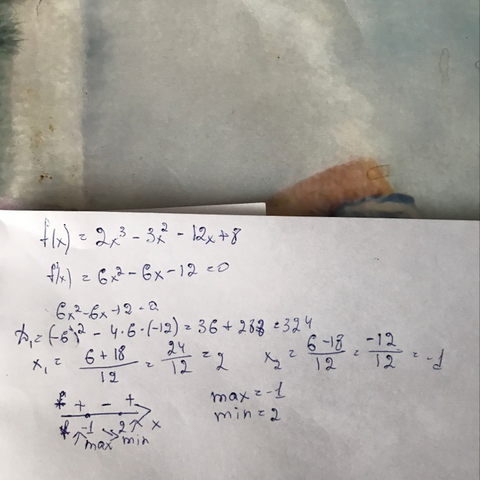 f(x) = 2x³ - 3x² - 12x + 8
f'(x) = 6x² - 6x - 12 = 0
6x² - 6x - 12 = 0
D₁ = (-6)² - 4·6·(-12) = 36 + 288 = 324
x₁ = (6 + 18)/12 = 24/12 = 2 x₂ = (6 - 18)/12 = -12/12 = -1
+ - + max = -1
-1 2 x min = 2
max min